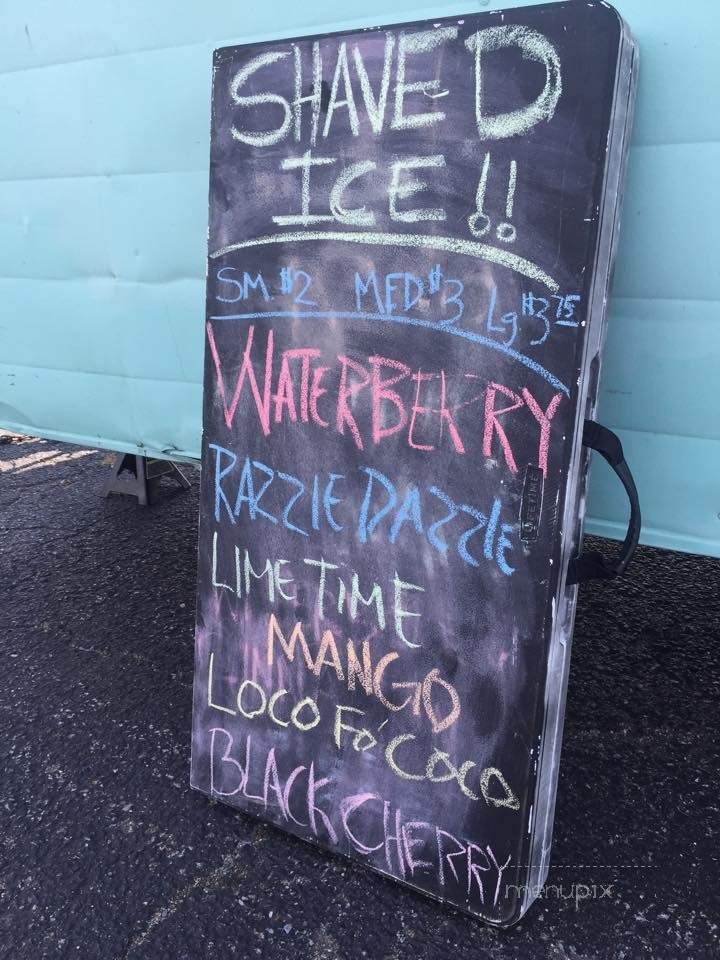 SHAVED
ICE !!
SM. $2 MED $3 Lg. $3 75
WATERBERRY
RAZZIE DAZZIE
LIME TIME
MANGO
LOCO FO' COCO
BLACK CHERRY
menupix